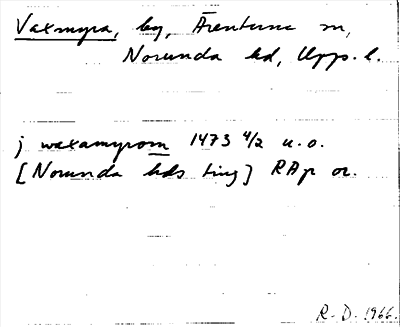 Vaxmyra, by, Ärentuna sn,
Norunda hd, Upps. l.
j waxamyrom 1473 4/2 u.o.
[Norunda hds ting] RAp or.
R. D. 1966.